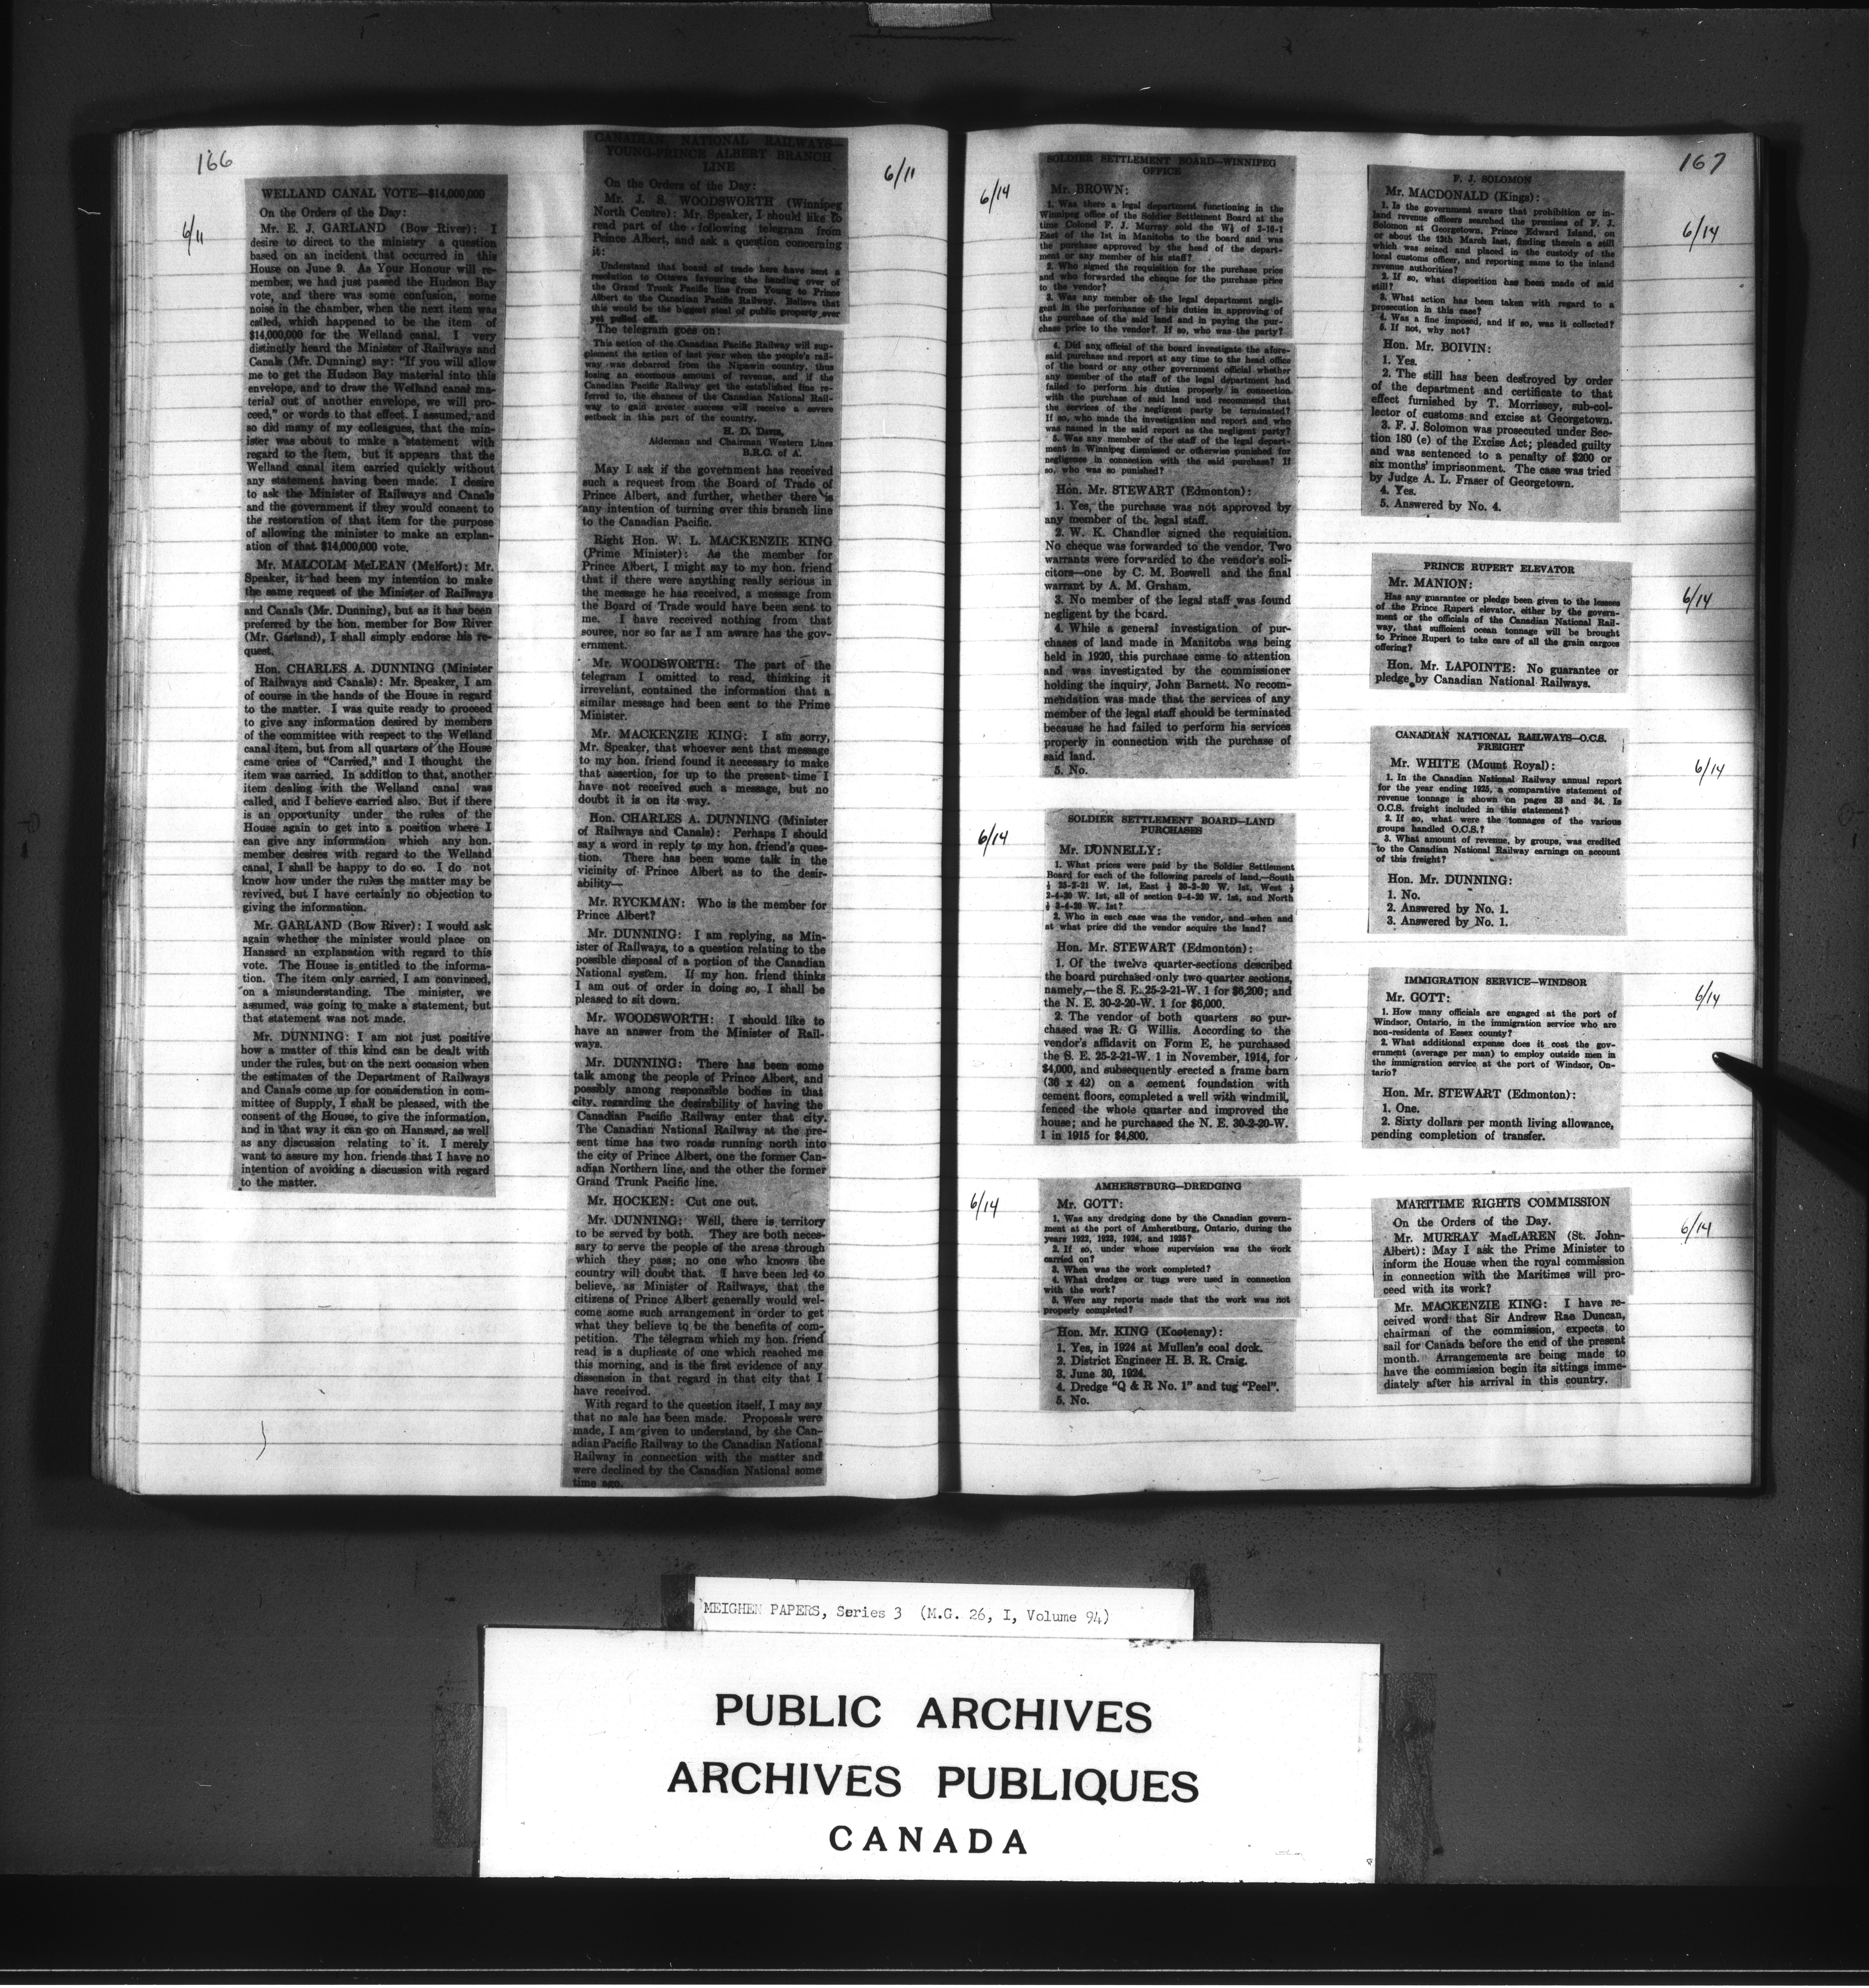 166
6/11
WELLAND CANAL VOTE—$14,000,000
On the Orders of the Day:
Mr. E. J. GARLAND (Bow River): I
desire to direct to the ministry a question
based on an incident that occurred in this
House on June 9. As Your Honour will re-
member, we had just passed the Hudson Bay
vote, and there was some confusion, some
noise in the chamber, when the next item was
called, which happened to be the item of
$14,000,000 for the Welland canal. I very
distinctly heard the Minister of Railways and
Canals (Mr. Dunning) say: "If you will allow
me to get the Hudson Bay material into this
envelope, and to draw the Welland canal ma-
terial out of another envelope, we will pro-
ceed," or words to that effect. I assumed, and
so did many of my colleagues, that the min-
ister was about to make a statement with
regard to the item, but it appears that the
Welland canal item carried quickly without
any statement having been made. I desire
to ask the Minister of Railways and Canals
and the government if they would consent to
the restoration of that item for the purpose
of allowing the minister to make an explan-
ation of that $14,000,000 vote.
Mr. MALCOLM McLEAN (Melfort): Mr.
Speaker, it had been my intention to make
the same request of the Minister of Railways
and Canals (Mr. Dunning), but as it has been
preferred by the hon. member for Bow River
(Mr. Garland), I shall simply endorse his re-
quest.
Hon. CHARLES A. DUNNING (Minister
of Railways and Canals): Mr. Speaker, I am
of course in the hands of the House in regard
to the matter. I was quite ready to proceed
to give any information desired by members
of the committee with respect to the Welland
canal item, but from all quarters of the House
came cries of "Carried," and I thought the
item was carried. In addition to that, another
item dealing with the Welland canal was
called, and I believe carried also. But if there
is an opportunity under the rules of the
House again to get into a position where I
can give any information which any hon.
member desires with regard to the Welland
canal, I shall be happy to do so. I do not
know how under the rules the matter may be
revived, but I have certainly no objection to
giving the information.
Mr. GARLAND (Bow River): I would ask
again whether the minister would place on
Hansard an explanation with regard to this
vote. The House is entitled to the informa-
tion. The item only carried, I am convinced,
on a misunderstanding. The minister, we
assumed, was going to make a statement, but
that statement was not made.
Mr. DUNNING: I am not just positive
how a matter of this kind can be dealt with
under the rules, but on the next occasion when
the estimates of the Department of Railways
and Canals come up for consideration in com-
mittee of Supply, I shall be pleased, with the
consent of the House, to give the information,
and in that way it can go on Hansard, as well
as any discussion relating to it. I merely
want to assure my hon. friends that I have no
intention of avoiding a discussion with regard
to the matter.
6/11
CANADIAN NATIONAL RAILWAYS—
YOUNG-PRINCE ALBERT BRANCH
LINE
On the Orders of the Day:
Mr. J. S. WOODSWORTH (Winnipeg
North Centre): Mr. Speaker, I should like to
read part of the following telegram from
Prince Albert, and ask a question concerning
it:
Understand that board of trade here have sent a
resolution to Ottawa favouring the handing over of
the Grand Trunk Pacific line from Young to Prince
Albert to the Canadian Pacific Railway. Believe that
this would be the biggest steal of public property ever
yet pulled off.
The telegram goes on:
This action of the Canadian Pacific Railway will sup-
plement the action of last year when the people's rail-
way was debarred from the Nipawin country, thus
losing an enormous amount of revenue, and if the
Canadian Pacific Railway get the established line re-
ferred to, the chances of the Canadian National Rail-
way to gain greater success will receive a severe
setback in this part of the country.
H. D. Davis,
Alderman and Chairman Western Lines
B.R.C. of A.
May I ask if the government has received
such a request from the Board of Trade of
Prince Albert, and further, whether there is
any intention of turning over this branch line
to the Canadian Pacific.
Right Hon. W. L. MACKENZIE KING
(Prime Minister): As the member for
Prince Albert, I might say to my hon. friend
that if there were anything really serious in
the message he has received, a message from
the Board of Trade would have been sent to
me. I have received nothing from that
source, nor so far as I am aware has the gov-
ernment.
Mr. WOODSWORTH: The part of the
telegram I omitted to read, thinking it
irrevelant, contained the information that a
similar message had been sent to the Prime
Minister.
Mr. MACKENZIE KING: I am sorry,
Mr. Speaker, that whoever sent that message
to my hon. friend found it necessary to make
that assertion, for up to the present time I
have not received such a message, but no
doubt it is on its way.
Hon. CHARLES A. DUNNING (Minister
of Railways and Canals): Perhaps I should
say a word in reply to my hon. friend's ques-
tion. There has been some talk in the
vicinity of Prince Albert as to the desir-
ability—
Mr. RYCKMAN: Who is the member for
Prince Albert?
Mr. DUNNING: I am replying, as Min-
ister of Railways, to a question relating to the
possible disposal of a portion of the Canadian
National system. If my hon. friend thinks
I am out of order in doing so, I shall be
pleased to sit down.
Mr. WOODSWORTH: I should like to
have an answer from the Minister of Rail-
ways.
Mr. DUNNING: There has been some
talk among the people of Prince Albert, and
possibly among responsible bodies in that
city, regarding the desirability of having the
Canadian Pacific Railway enter that city.
The Canadian National Railway at the pre-
sent time has two roads running north into
the city of Prince Albert, one the former Can-
adian Northern line, and the other the former
Grand Trunk Pacific line.
Mr. HOCKEN: Cut one out.
Mr. DUNNING: Well, there is territory
to be served by both. They are both neces-
sary to serve the people of the areas through
which they pass; no one who knows the
country will doubt that. I have been led to
believe, as Minister of Railways, that the
citizens of Prince Albert generally would wel-
come some such arrangement in order to get
what they believe to be the benefits of com-
petition. The telegram which my hon. friend
read is a duplicate of one which reached me
this morning, and is the first evidence of any
dissension in that regard in that city that I
have received.
With regard to the question itself, I may say
that no sale has been made. Proposals were
made, I am given to understand, by the Can-
adian Pacific Railway to the Canadian National
Railway in connection with the matter and
were declined by the Canadian National some
time ago.
167
6/14
SOLDIER SETTLEMENT BOARD—WINNIPEG
OFFICE
Mr. BROWN:
1. Was there a legal department functioning in the
Winnipeg office of the Soldier Settlement Board at the
time Colonel F. J. Murray sold the W½ of 2-16-1
East of the 1st in Manitoba to the board and was
the purchase approved by the head of the depart-
ment or any member of his staff?
2. Who signed the requisition for the purchase price
and who forwarded the cheque for the purchase price
to the vendor?
3. Was any member of the legal department negli-
gent in the performance of his duties in approving of
the purchase of the said land and in paying the pur-
chase price to the vendor? If so, who was the party?
4. Did any official of the board investigate the afore-
said purchase and report at any time to the head office
of the board or any other government official whether
any member of the staff of the legal department had
failed to perform his duties properly in connection
with the purchase of said land and recommend that
the services of the negligent party be terminated?
If so, who made the investigation and report and who
was named in the said report as the negligent party?
5. Was any member of the staff of the legal depart-
ment in Winnipeg dismissed or otherwise punished for
negligence in connection with the said purchase? If
so, who was so punished?
Hon. Mr. STEWART (Edmonton):
1. Yes, the purchase was not approved by
any member of the legal staff.
2. W. K. Chandler signed the requisition.
No cheque was forwarded to the vendor. Two
warrants were forwarded to the vendor's soli-
citors—one by C. M. Boswell and the final
warrant by A. M. Graham.
3. No member of the legal staff was found
negligent by the board.
4. While a general investigation of pur-
chases of land made in Manitoba was being
held in 1920, this purchase came to attention
and was investigated by the commissioner
holding the inquiry, John Barnett. No recom-
mendation was made that the services of any
member of the legal staff should be terminated
because he had failed to perform his services
properly in connection with the purchase of
said land.
5. No.
6/14
SOLDIER SETTLEMENT BOARD—LAND
PURCHASES
Mr. DONNELLY:
1. What prices were paid by the Soldier Settlement
Board for each of the following parcels of land,—South
½ 25-2-21 W. 1st, East ½ 30-2-20 W. 1st, West ½
2-4-20 W. 1st, all of section 9-4-20 W. 1st, and North
½ 3-4-20 W. 1st?
2. Who in each case was the vendor, and when and
at what price did the vendor acquire the land?
Hon. Mr. STEWART (Edmonton):
1. Of the twelve quarter-sections described
the board purchased only two quarter sections,
namely,—the S. E. 25-2-21-W. 1 for $6,200; and
the N. E. 30-2-20-W. 1 for $6,000.
2. The vendor of both quarters so pur-
chased was R. G Willis. According to the
vendor's affidavit on Form E, he purchased
the S. E. 25-2-21-W. 1 in November, 1914, for
$4,000, and subsequently erected a frame barn
(36 x 42) on a cement foundation with
cement floors, completed a well with windmill,
fenced the whole quarter and improved the
house; and he purchased the N. E. 30-2-20-W.
1 in 1915 for $4,800.
6/14
AMHERSTBURG—DREDGING
Mr. GOTT:
1. Was any dredging done by the Canadian govern-
ment at the port of Amherstburg, Ontario, during the
years 1922, 1923, 1924, and 1925?
2. If so, under whose supervision was the work
carried on?
3. When was the work completed?
4. What dredges or tugs were used in connection
with the work?
5. Were any reports made that the work was not
properly completed?
Hon. Mr. KING (Kootenay):
1. Yes, in 1924 at Mullen's coal dock.
2. District Engineer H. B. R. Craig.
3. June 30, 1924.
4. Dredge "Q & R No. 1" and tug "Peel".
5. No.
6/14
F. J. SOLOMON
Mr. MACDONALD (Kings):
1. Is the government aware that prohibition or in-
land revenue officers searched the premises of F. J.
Solomon at Georgetown, Prince Edward Island, on
or about the 13th March last, finding therein a still
which was seized and placed in the custody of the
local customs officer, and reporting same to the inland
revenue authorities?
2. If so, what disposition has been made of said
still?
3. What action has been taken with regard to a
prosecution in this case?
4. Was a fine imposed, and if so, was it collected?
5. If not, why not?
Hon. Mr. BOIVIN:
1. Yes.
2. The still has been destroyed by order
of the department and certificate to that
effect furnished by T. Morrissey, sub-col-
lector of customs and excise at Georgetown.
3. F. J. Solomon was prosecuted under Sec-
tion 180 (e) of the Excise Act; pleaded guilty
and was sentenced to a penalty of $200 or
six months' imprisonment. The case was tried
by Judge A. L. Fraser of Georgetown.
4. Yes.
5. Answered by No. 4.
6/14
PRINCE RUPERT ELEVATOR
Mr. MANION:
Has any guarantee or pledge been given to the lessees
of the Prince Rupert elevator, either by the govern-
ment or the officials of the Canadian National Rail-
way, that sufficient ocean tonnage will be brought
to Prince Rupert to take care of all the grain cargoes
offering?
Hon. Mr. LAPOINTE: No guarantee or
pledge by Canadian National Railways.
6/14
CANADIAN NATIONAL RAILWAYS—O.C.S.
FREIGHT
Mr. WHITE (Mount Royal):
1. In the Canadian National Railway annual report
for the year ending 1925, a comparative statement of
revenue tonnage is shown on pages 33 and 34. Is
O.C.S. freight included in this statement?
2. If so, what were the tonnages of the various
groups handled O.C.S.?
3. What amount of revenue, by groups, was credited
to the Canadian National Railway earnings on account
of this freight?
Hon. Mr. DUNNING:
1. No.
2. Answered by No. 1.
3. Answered by No. 1.
6/14
IMMIGRATION SERVICE—WINDSOR
Mr. GOTT:
1. How many officials are engaged at the port of
Windsor, Ontario, in the immigration service who are
non-residents of Essex county?
2. What additional expense does it cost the gov-
ernment (average per man) to employ outside men in
the immigration service at the port of Windsor, On-
tario?
Hon. Mr. STEWART (Edmonton):
1. One.
2. Sixty dollars per month living allowance,
pending completion of transfer.
6/14
MARITIME RIGHTS COMMISSION
On the Orders of the Day.
Mr. MURRAY MacLAREN (St. John-
Albert): May I ask the Prime Minister to
inform the House when the royal commission
in connection with the Maritimes will pro-
ceed with its work?
Mr. MACKENZIE KING: I have re-
ceived word that Sir Andrew Rae Duncan,
chairman of the commission, expects to
sail for Canada before the end of the present
month. Arrangements are being made to
have the commission begin its sittings imme-
diately after his arrival in this country.
MEIGHEN PAPERS, Series 3 (M.G. 26, I, Volume 94)
PUBLIC ARCHIVES
ARCHIVES PUBLIQUES
CANADA